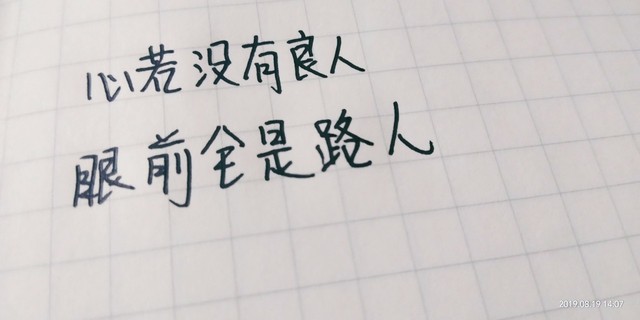 心若没有良人
眼前全是路人
2019.08.19 14:07